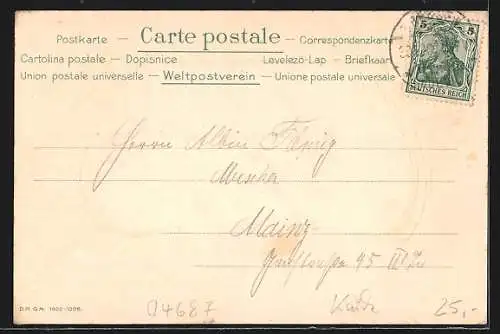 Postkarte — Carte postale — Correspondenzkarte
Cartolina postale — Dopisnice Levelezö-Lap — Briefkaart
Union postale universelle — Weltpostverein — Unione postale universale
5 5
DEUTSCHES REICH
Herrn Albin König
Mainz
95 III
D.R.G.M.
A4687
Karte
25,-